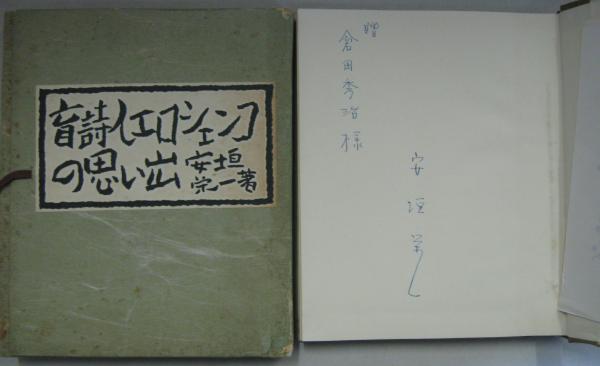 盲詩人エロシェンコ
の思い出 安垣栄一著
贈
倉田秀治様
安垣栄一